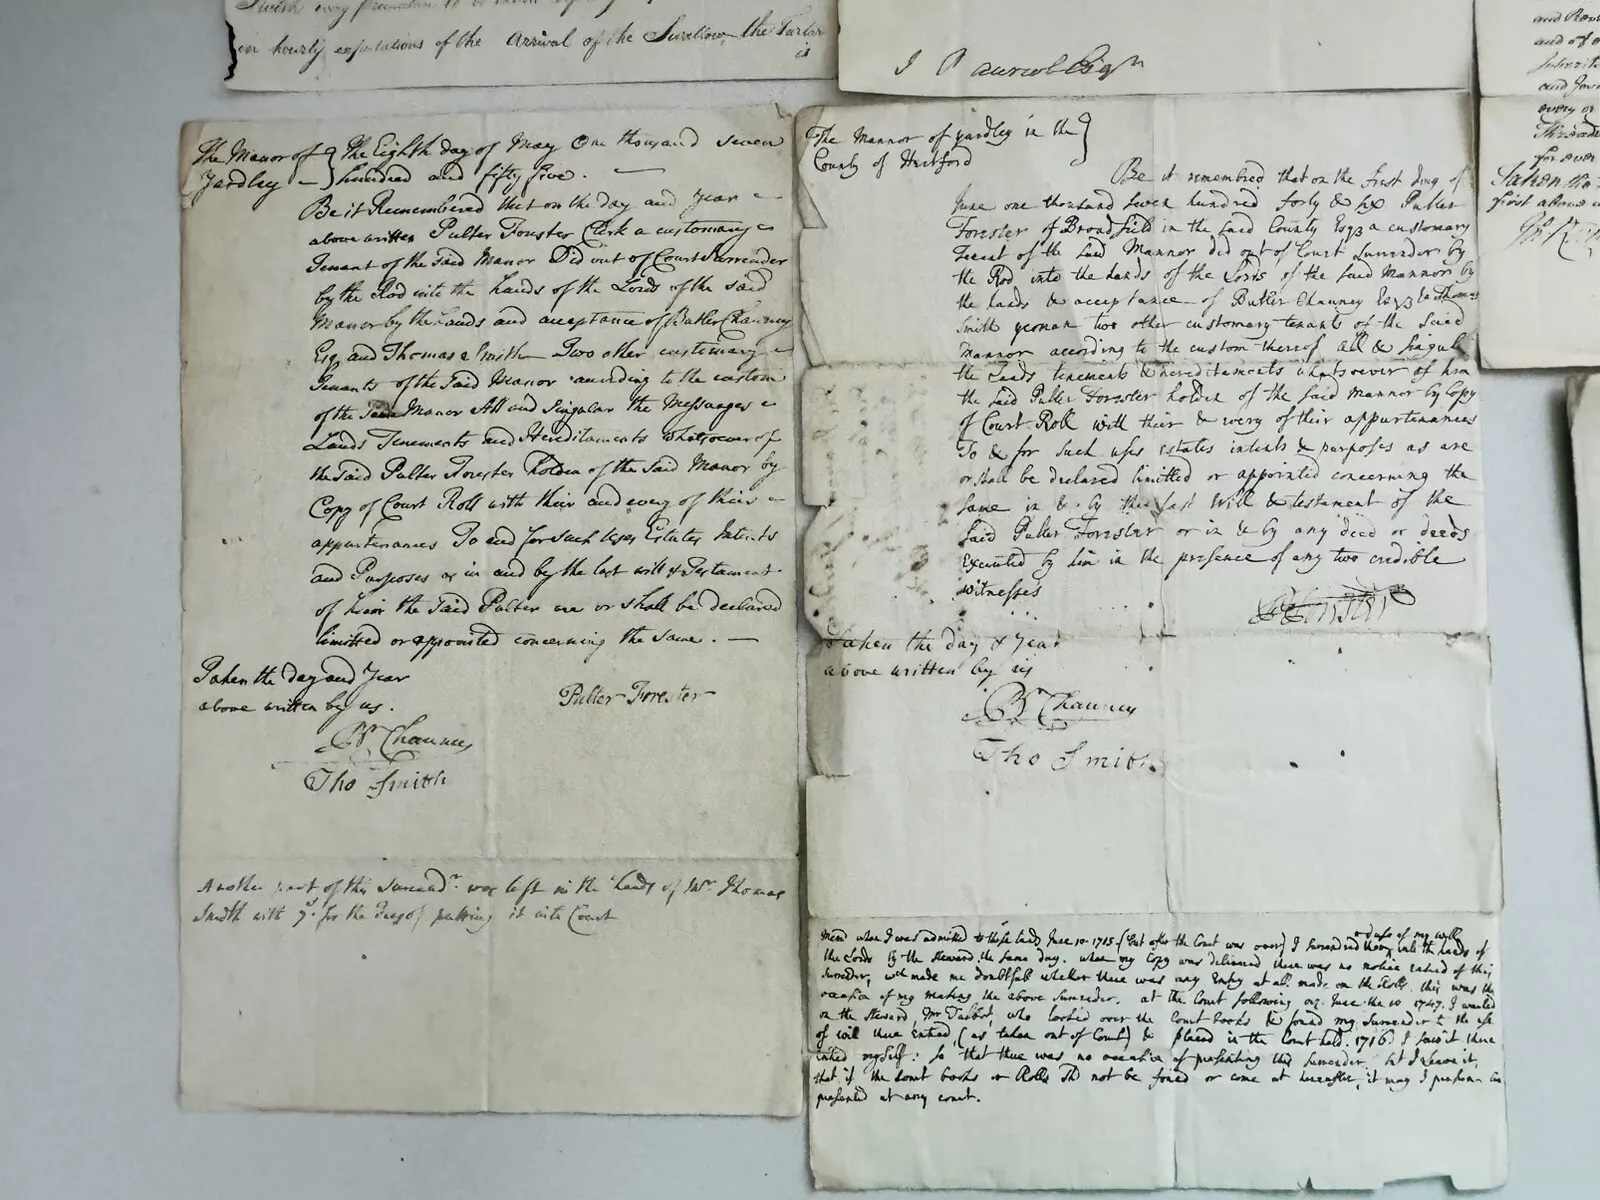 in hourly expectations of the Arrival of the Swallow, the
is
The Manor of } The Eighth day of May One thousand seven
Yardley } hundred and fifty five.
Be it Remembered that on the day and Year
above written Pulter Forester Clerk a customary
Tenant of the said Manor Did out of Court Surrender
by the Rod into the hands of the Lords of the said
Manor by the hands and acceptance of Butler Chauncy
Esq. and Thomas Smith Two other customary
Tenants of the said Manor according to the custom
of the said Manor All and Singular the Messuages
Lands Tenements and Hereditaments whatsoever of
the said Pulter Forester holden of the said Manor by
Copy of Court Roll with their and every of their
appurtenances To and for such Uses Estates Intents
and Purposes as in and by the last will & Testament
of him the said Pulter are or shall be declared
limitted or appointed concerning the same.
Taken the day and Year
above written by us.
Pulter Forester
Br Chauncy
Tho Smith
Another part of this Surrendr. was left in the hands of Mr. Thomas
Smith with for the of putting it into Court
The Mannor of Yardley in the }
County of Hartford
Be it remembred that on the first day of
June one thousand seven hundred forty & six Pulter
Forester of Broadfield in the said County Esq a customary
Tenent of the said Mannor did out of Court surender by
the Rod into the hands of the Lords of the said Mannor by
the hands & acceptance of Butler Chauncy Esq & Thomas
Smith yeoman two other customary tenants of the said
Mannor according to the custom thereof All & singul
the Lands tenements & hereditaments whatsoever of him
the said Pulter Forester holden of the said Mannor by Copy
of Court Roll with their & every of their appurtenances
To & for such uses estates intents & purposes as are
or shall be declared limitted or appointed concerning the
same in & by the last Will & testament of the
said Pulter Forester or in & by any deed or deeds
Executed by him in the presence of any two credible
witnesses
Taken the day & Year
above written by us
Br Chauncy
Tho Smith
Mem when I was admitted to these lands June 10 1715 (but after the Court was over) I surrendred them to use of my will into the hands of
the Lords by the steward the same day. when my Copy was delivered there was no notice taken of this
surrender, wch made me doubtfull whether there was any Entry at all made on the Rolls. this was the
occasion of my making the above surrender. at the Court following June the 10 1747. I waited
on the steward, Mr Talbot, who looked over the Court books & found my surrender to the use
of will there Entred, (as taken out of Court) & placed in the Court held. 1716. I saw it there
my self: so that there was no occasion of presenting this surrender. but I leave it,
that if the court books or Rolls shd not be found or come at hereafter, it may I presume be
presented at any court.
and
and of
and
every or
for ever
Taken the
first above